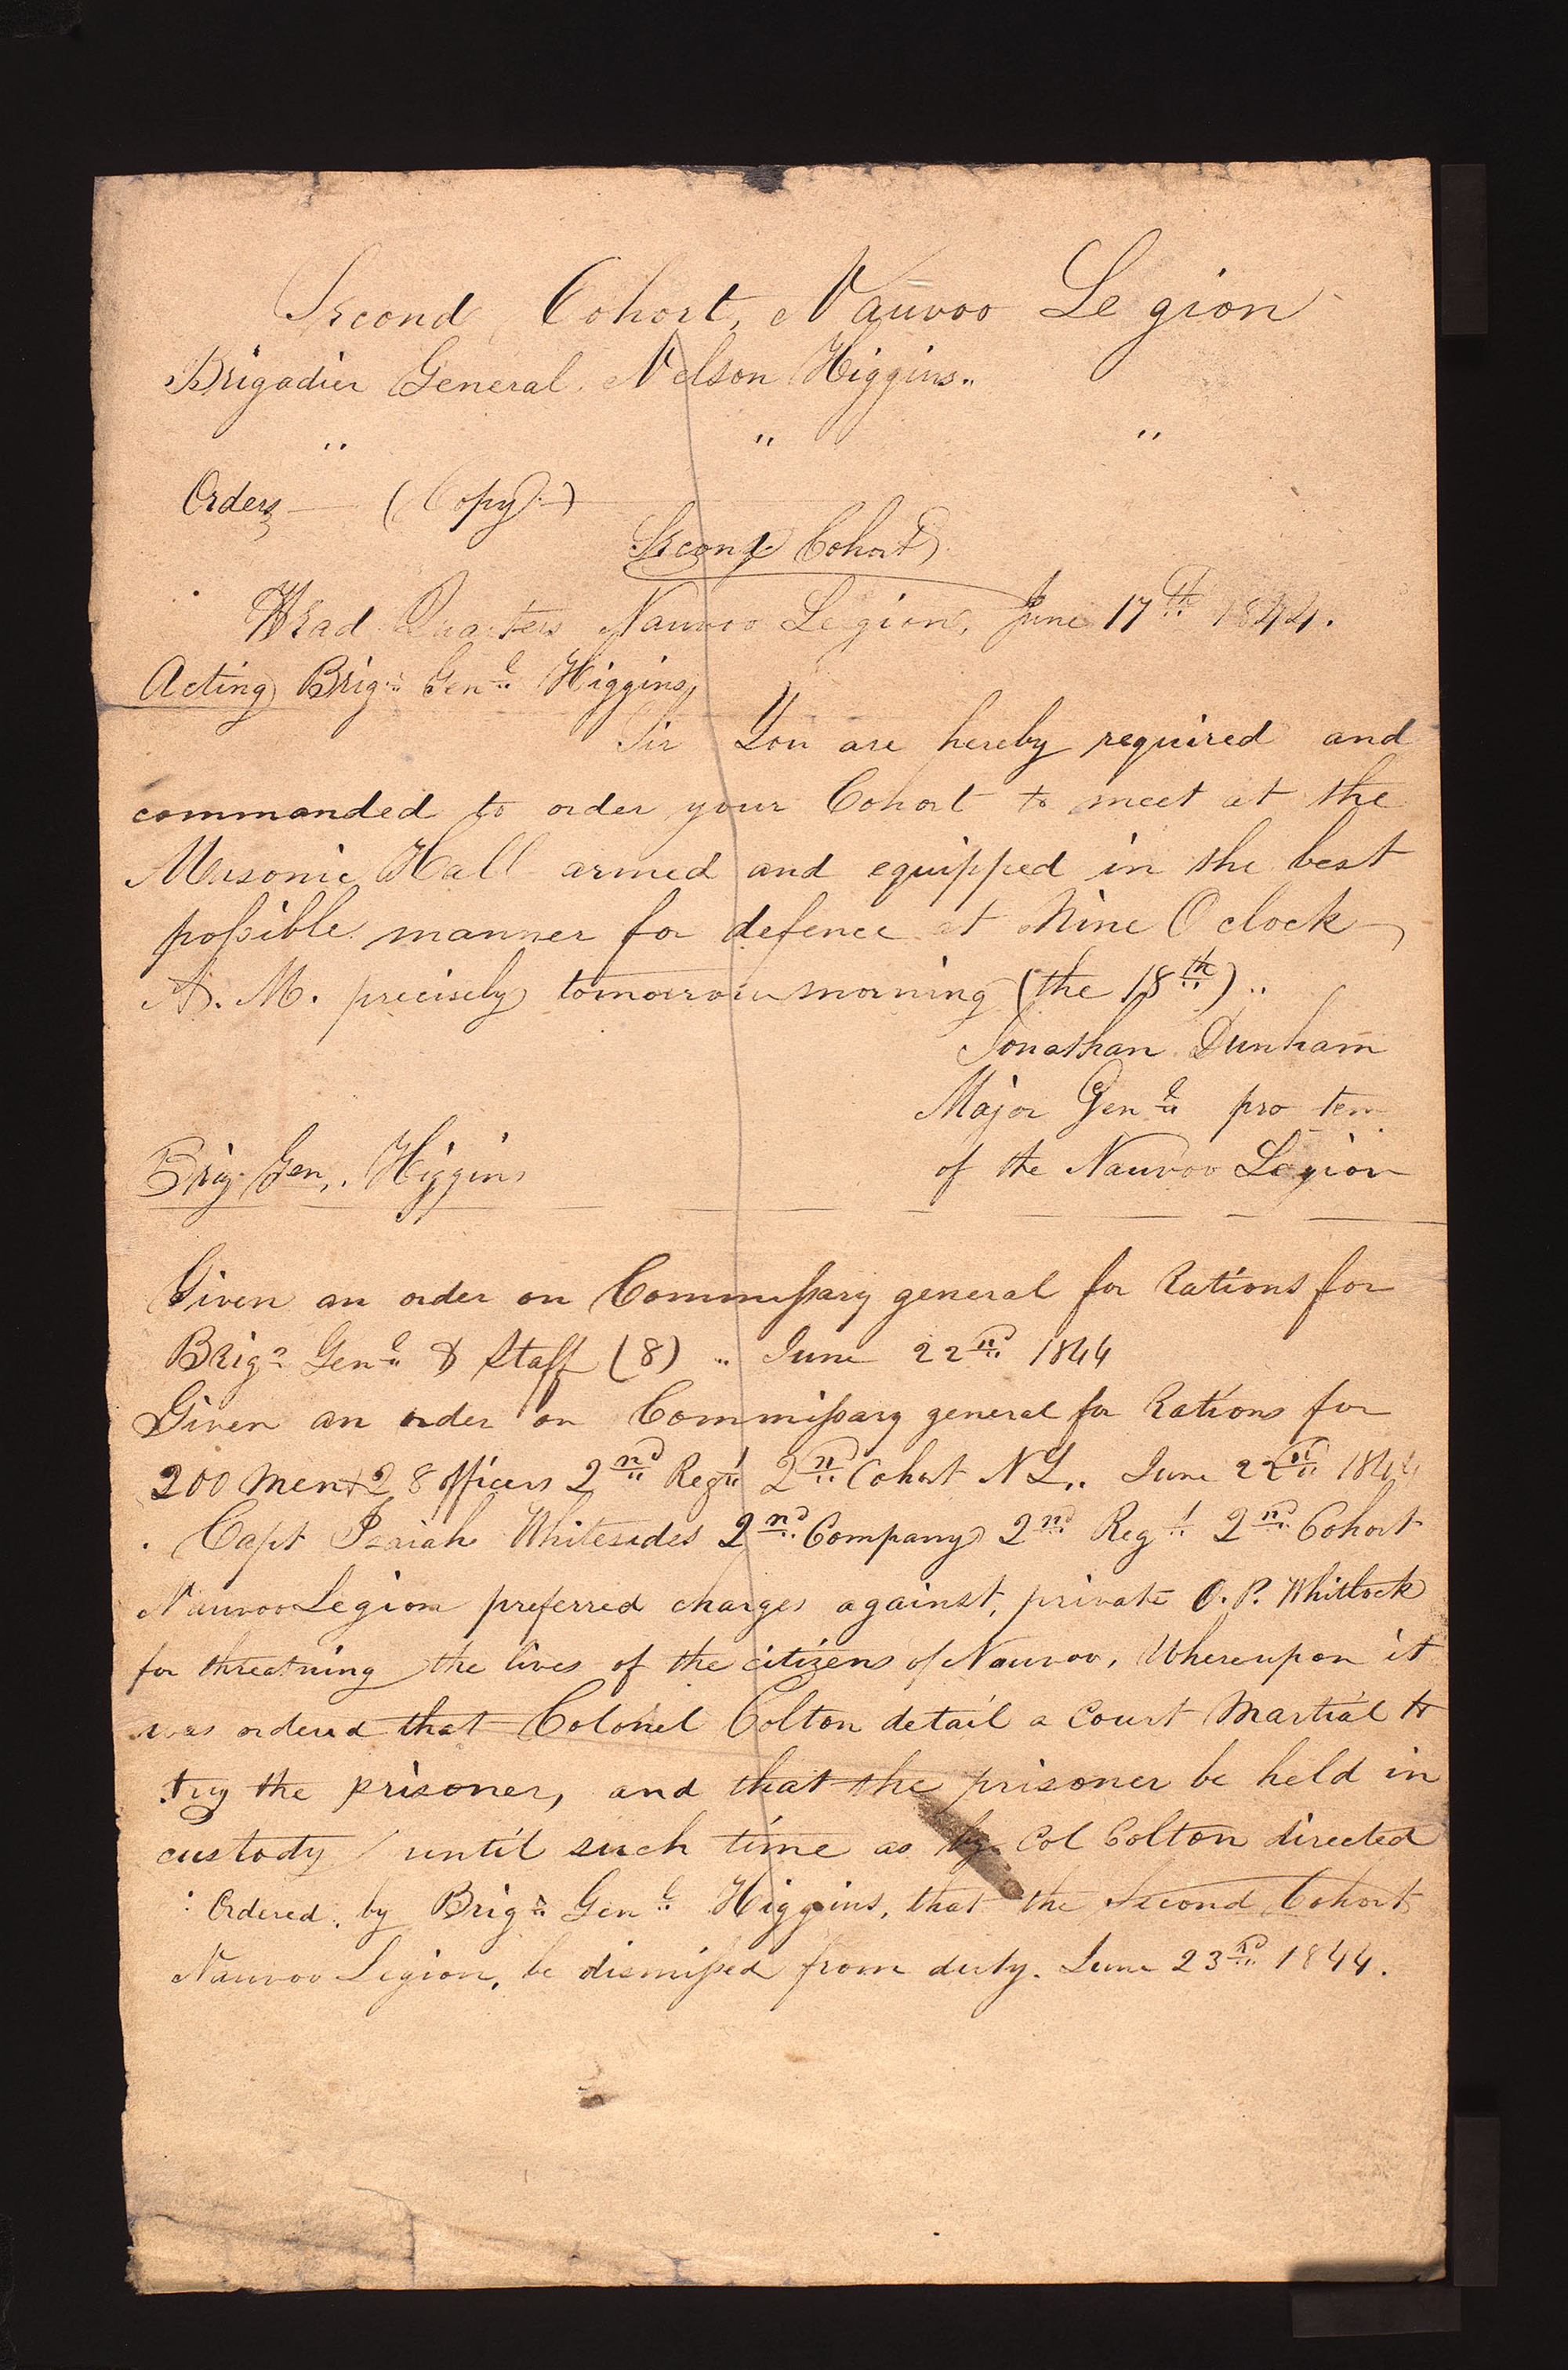 Second Cohort, Nauvoo Legion
Brigadier General Nelson Higgins..
" " "
Orders — (Copy.)
Second Cohort
Head Quarters Nauvoo Legion, June 17th 1844.
Acting Brigr Genl Higgins,
Sir You are hereby required and
commanded to order your Cohort to meet at the
Masonic Hall armed and equipped in the best
possible manner for defence at Nine O clock
A. M. precisely tomorrow morning (the 18th)..
Jonathan Dunham
Major Genl pro tem
of the Nauvoo Legion
Brig. Gen. Higgins
Given an order on Commissary general for Rations for
Brigr Genl & Staff (8) .. June 22nd 1844
Given an order on Commissary general for Rations for
200 men & 28 officers 2nd Regt 2nd Cohort N L.. June 22nd 1844
Capt Isaiah Whitesides 2nd Company 2nd Regt 2nd Cohort
Nauvoo Legion preferred charges against, private O. P. Whitlock
for threatning the lives of the citizens of Nauvoo, Whereupon it
was ordered that Colonel Colton detail a Court Martial to
try the prisoner, and that the prisoner be held in
custody until such time as by Col Colton directed
Ordered, by Brigr Genl Higgins, that the Second Cohort
Nauvoo Legion, be dismissed from duty. June 23rd 1844.